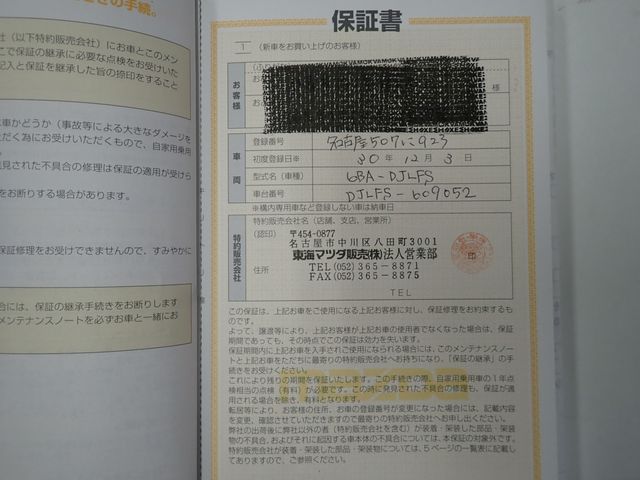 きの手続。
社（以下特約販売会社）にお車とこのメン
こで保証の継承に必要な点検をお受けいた
記入と保証を継承した旨の捺印をすること
車かどうか（事故等による大きなダメージを
ただく為にお受けいただくもので、自家用乗用
発見された不具合の修理は保証の適用が受けら
をお断りする場合があります。
保証修理をお受けできませんので、すみやかに
合には、保証の継承手続きをお断りします
メンテナンスノートを必ずお車と一緒にお
保証書
1 （新車をお買い上げのお客様）
お客様
様
車両
登録番号 名古屋507に923
初度登録日※ 30年12月3日
型式名（車種） 6BA-DJLFS
車台番号 DJLFS-609052
※構内専用車など登録しない車は納車日
特約販売会社
特約販売会社名（店舗、支店、営業所）
（認印） 〒454-0877
名古屋市中川区八田町3001
東海マツダ販売(株)法人営業部
印
住所 TEL(052)365-8871
FAX(052)365-8875
TEL
この保証は、上記お車をご使用になる上記お客様に対し、保証修理をお約束するものです。
よって、譲渡等により、上記お客様が上記お車の使用者でなくなった場合は、保証
期間であっても、その時点でこの保証は効力を失います。
保証期間内に上記お車を入手されご使用になられる場合には、このメンテナンスノー
トと上記お車をただちに最寄りの特約販売会社へお持ちになり、「保証の継承」の手
続きをお受けください。
これにより残りの期間を保証いたします。この手続きの際、自家用乗用車の1年点
検相当の点検（有料）が必要です。この時に発見された不具合の修理も、保証が適
用される場合を除き、有料となります。
転居等により、お客様の住所、お車の登録番号が変更になった場合には、記載内容
を変更、確認させていただきますので最寄りの特約販売会社へお申し出ください。
弊社の出荷後に弊社以外の者（特約販売会社を含む）が装着・架装した部品・架装
物の不具合、およびそれに起因する車本体の不具合については、本保証の対象外です。
特約販売会社が装着・架装した部品・架装物については、5ページの一覧表に記載し
てありますので、ご参照ください。